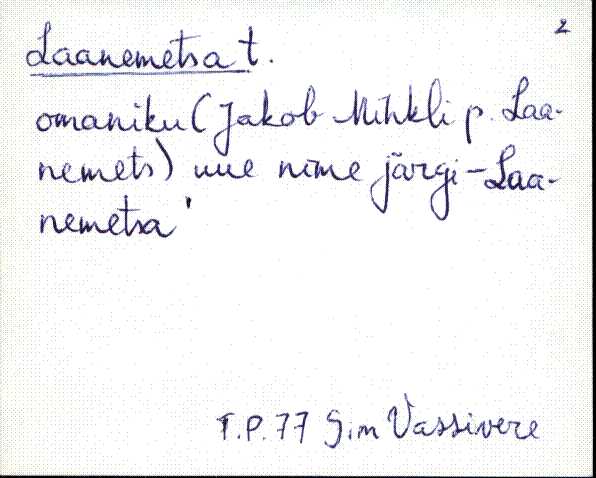 2
Laanemetsa t.
omaniku (Jakob Mihkli p. Laa-
nemets) uue nime järgi - Laa-
nemetsa'
T.P. 77 S.m Vassivere